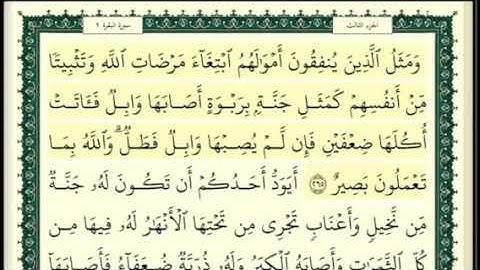 الجزء الثالث
سورة البقرة ٢
وَمَثَلُ ٱلَّذِينَ يُنفِقُونَ أَمْوَٰلَهُمُ ٱبْتِغَآءَ مَرْضَاتِ ٱللَّهِ وَتَثْبِيتًا
مِّنْ أَنفُسِهِمْ كَمَثَلِ جَنَّةٍۭ بِرَبْوَةٍ أَصَابَهَا وَابِلٌ فَـَٔاتَتْ
أُكُلَهَا ضِعْفَيْنِ فَإِن لَّمْ يُصِبْهَا وَابِلٌ فَطَلٌّ ۗ وَٱللَّهُ بِمَا
تَعْمَلُونَ بَصِيرٌ ٢٦٥ أَيَوَدُّ أَحَدُكُمْ أَن تَكُونَ لَهُۥ جَنَّةٌ
مِّن نَّخِيلٍ وَأَعْنَابٍ تَجْرِى مِن تَحْتِهَا ٱلْأَنْهَٰرُ لَهُۥ فِيهَا مِن
كُلِّ ٱلثَّمَرَٰتِ وَأَصَابَهُ ٱلْكِبَرُ وَلَهُۥ ذُرِّيَّةٌ ضُعَفَآءُ فَأَصَابَهَآ